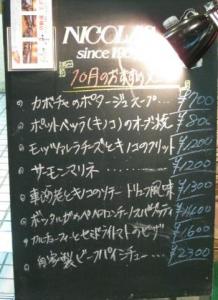 NICOLAS
since 19
10月のおすすめ
カボチャのポタージュスープ… ¥700
ポットベッラ(キノコ)のオーブン焼 ¥800
モッツァレラチーズとキノコのフリット ¥1200
サーモンマリネ ¥1200
車海老とキノコのソテー トリュフ風味 ¥1300
ボッタルガのペペロンチーノスパゲティ ¥1400
カルチョーフィーとセミドライトマトのピザ ¥1600
自家製ビーフパイシチュー… ¥2300